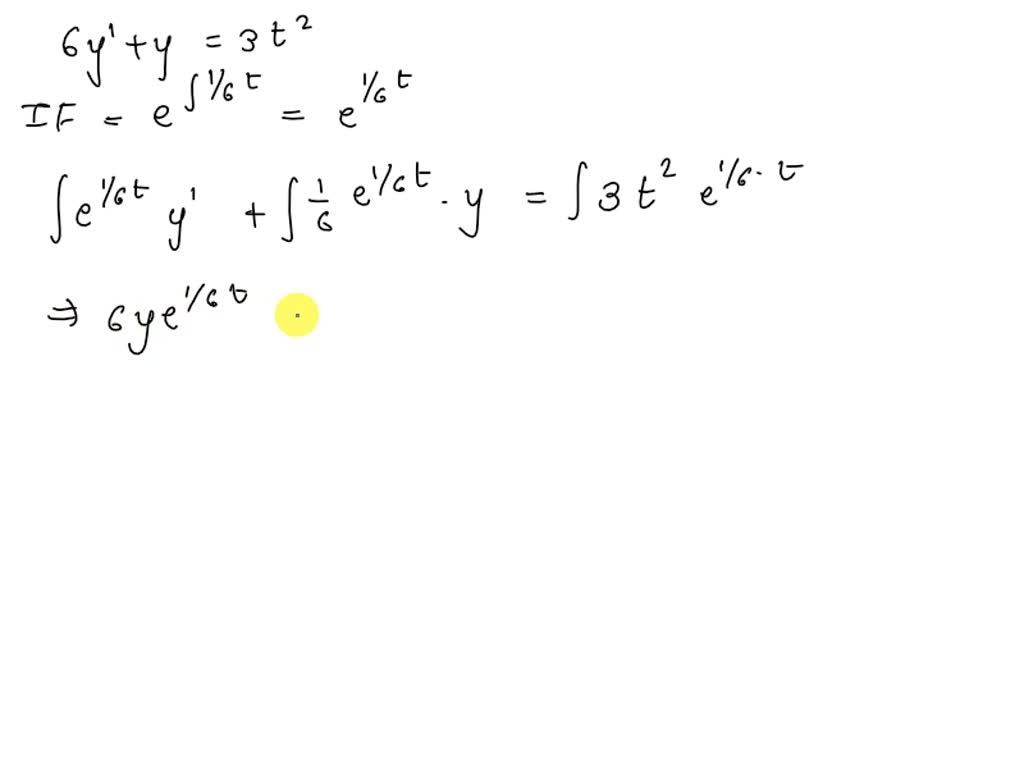 6y' + y = 3t²
IF = e^∫1/6 t = e^1/6 t
∫e^1/6t y' + ∫1/6 e^1/6t · y = ∫3t² e^1/6· t
⇒ 6ye^1/6 t